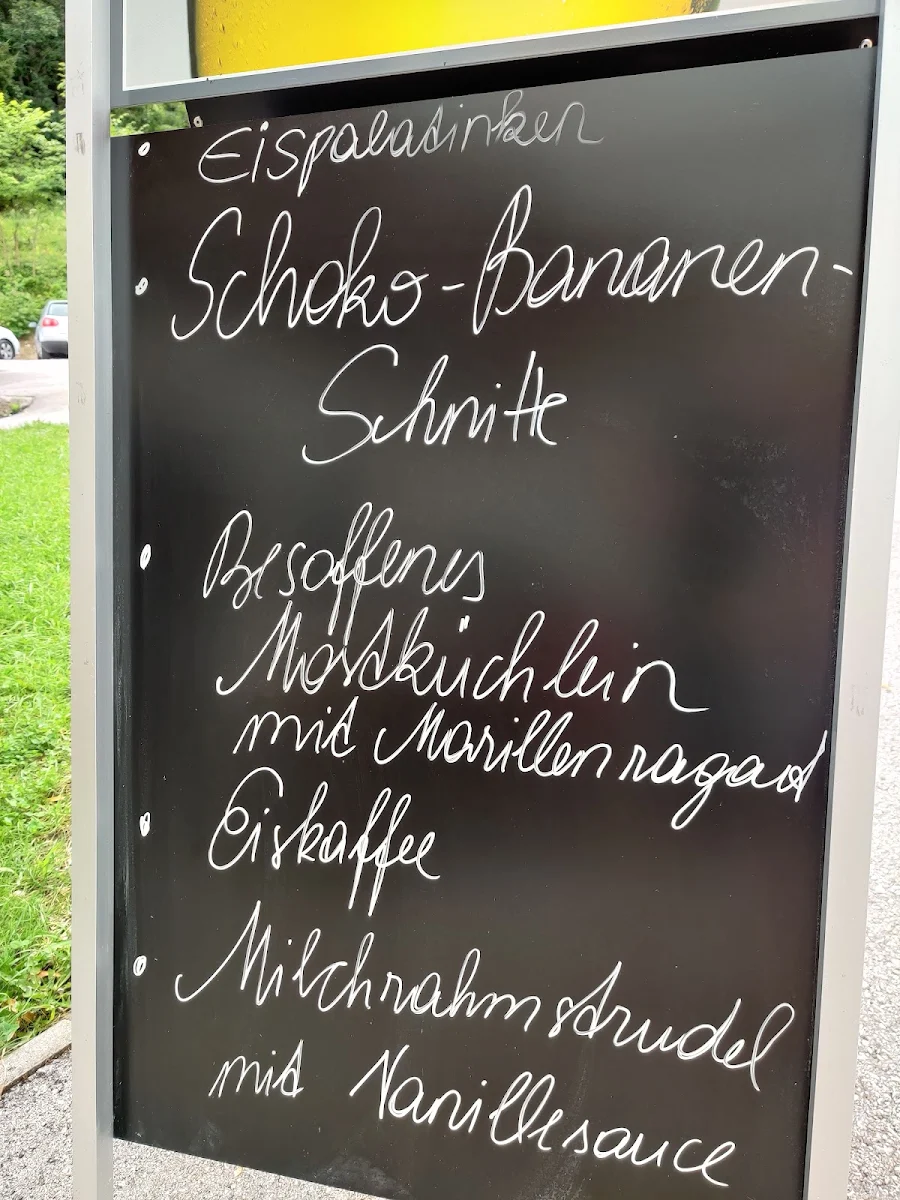 Eispalatinken
Schoko-Bananen-
Schnitte
Besoffenes
Mostküchlein
mit Marillenragout
Eiskaffee
Milchrahmstrudel
mit Vanillesauce